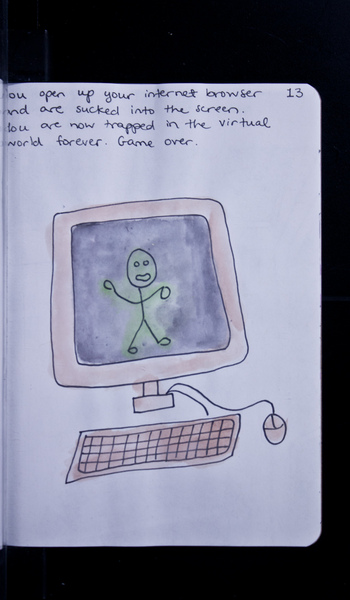 ou open up your internet browser 13
nd are sucked into the screen.
ou are now trapped in the virtual
world forever. Game over.